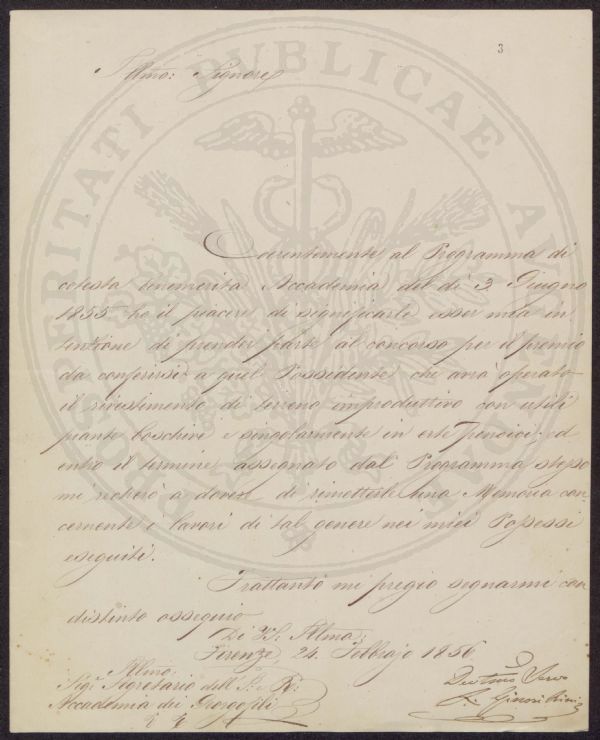 3
Illmo: Signore
Coerentemente al Programma di
cotesta benemerita Accademia del dì 3 Giugno
1855 ho il piacere di significarle esser mia in
tenzione di prender parte al concorso per il premio
da conferirsi a quel Possidente che avrà operato
il rivestimento di terreno improduttivo con utili
piante boschive e singolarmente in erte pendici: ed
entro il termine assegnato dal Programma stesso
mi recherò a dovere di rimetterle una Memoria con
cernente i lavori di tal genere nei miei Possessi
eseguiti.
Frattanto mi pregio segnarmi con
distinto ossequio
Di VS. Illma:
Firenze 24. Febbrajo 1856
Illmo:
Sigr. Segretario dell' I. e R:
Accademia dei Georgofili
Devmo Servo
Ginori
PROSPERITATI PUBLICAE AUGENDAE